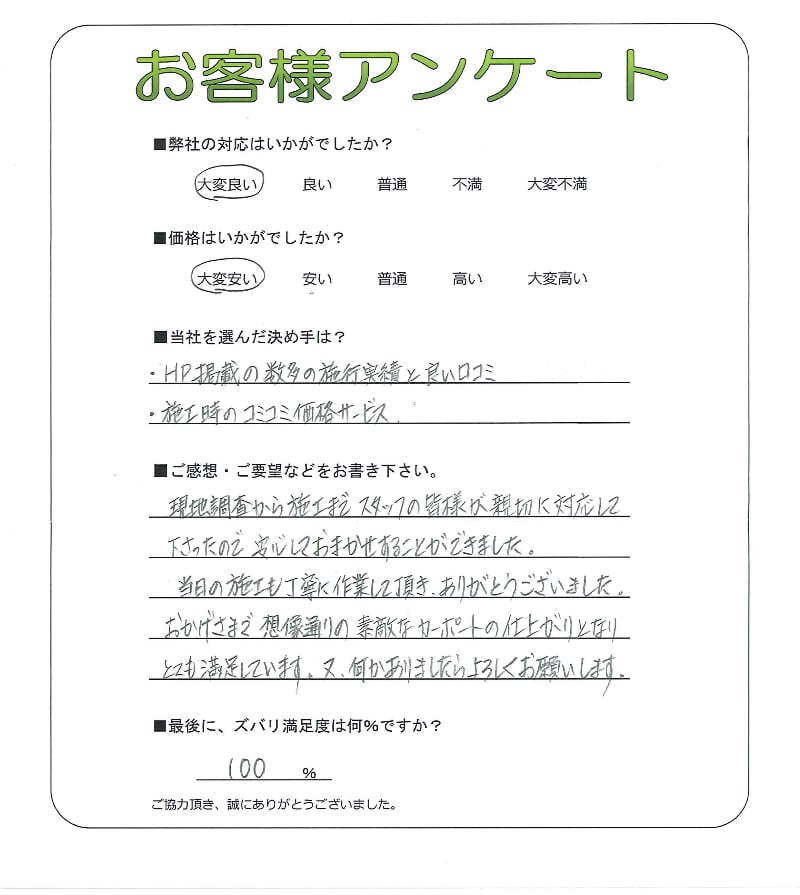 お客様アンケート
■弊社の対応はいかがでしたか？
大変良い 良い 普通 不満 大変不満
■価格はいかがでしたか？
大変安い 安い 普通 高い 大変高い
■当社を選んだ決め手は？
・HP掲載の数多の施行実績と良い口コミ
・施工時のコミコミ価格サービス
■ご感想・ご要望などをお書き下さい。
現地調査から施工まで スタッフの皆様が 親切に対応して
下さったので 安心しておまかせすることができました。
当日の施工も丁寧に作業して頂き、ありがとうございました。
おかげさまで 想像通りの 素敵なカーポートの仕上がりとなり
とても満足しています。又、何かありましたらよろしくお願いします。
■最後に、ズバリ満足度は何%ですか？
100 %
ご協力頂き、誠にありがとうございました。